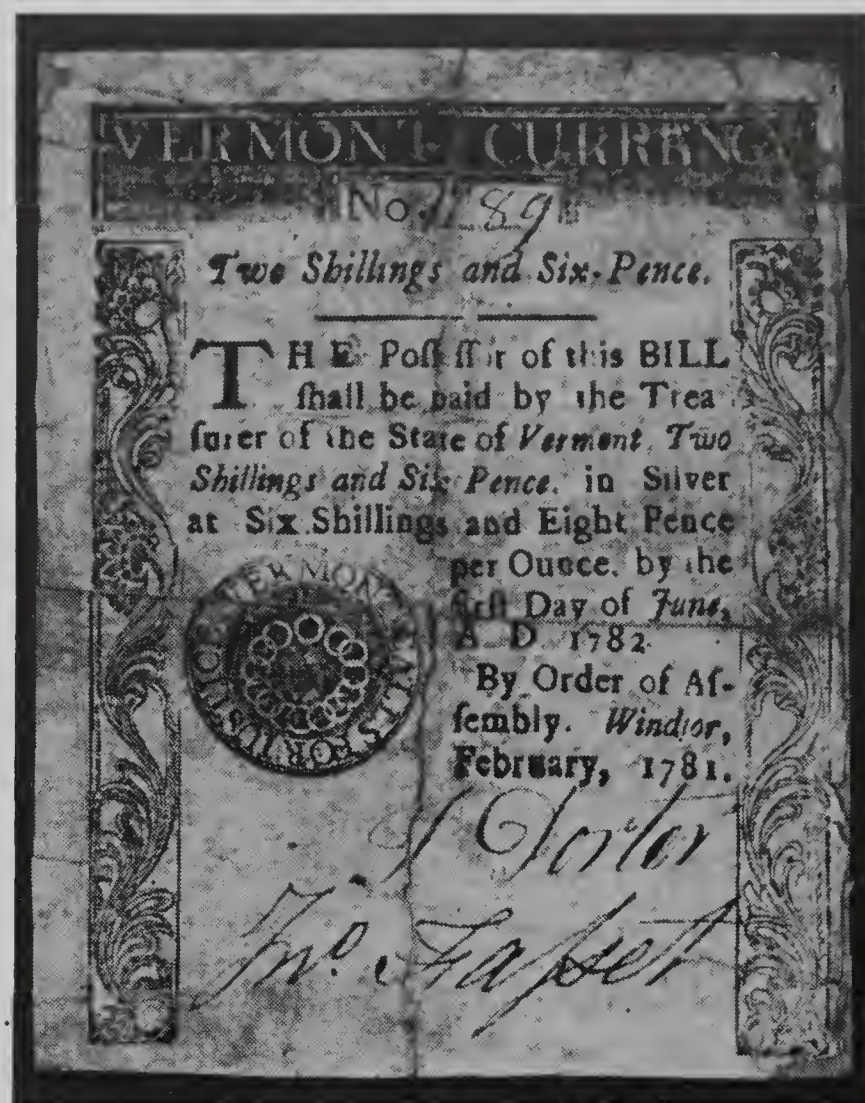 VERMONT CURRENC
No. 1189
Two Shillings and Six-Pence.
THE Poſſeſſor of this BILL
ſhall be paid by the Trea
ſurer of the State of Vermont, Two
Shillings and Six Pence, in Silver
at Six Shillings and Eight Pence
per Ounce, by the
firſt Day of June,
A D 1782.
By Order of Aſ-
ſembly. Windſor,
February, 1781.
VERMONT CALLS FOR JUSTICE
Jnº Faſset